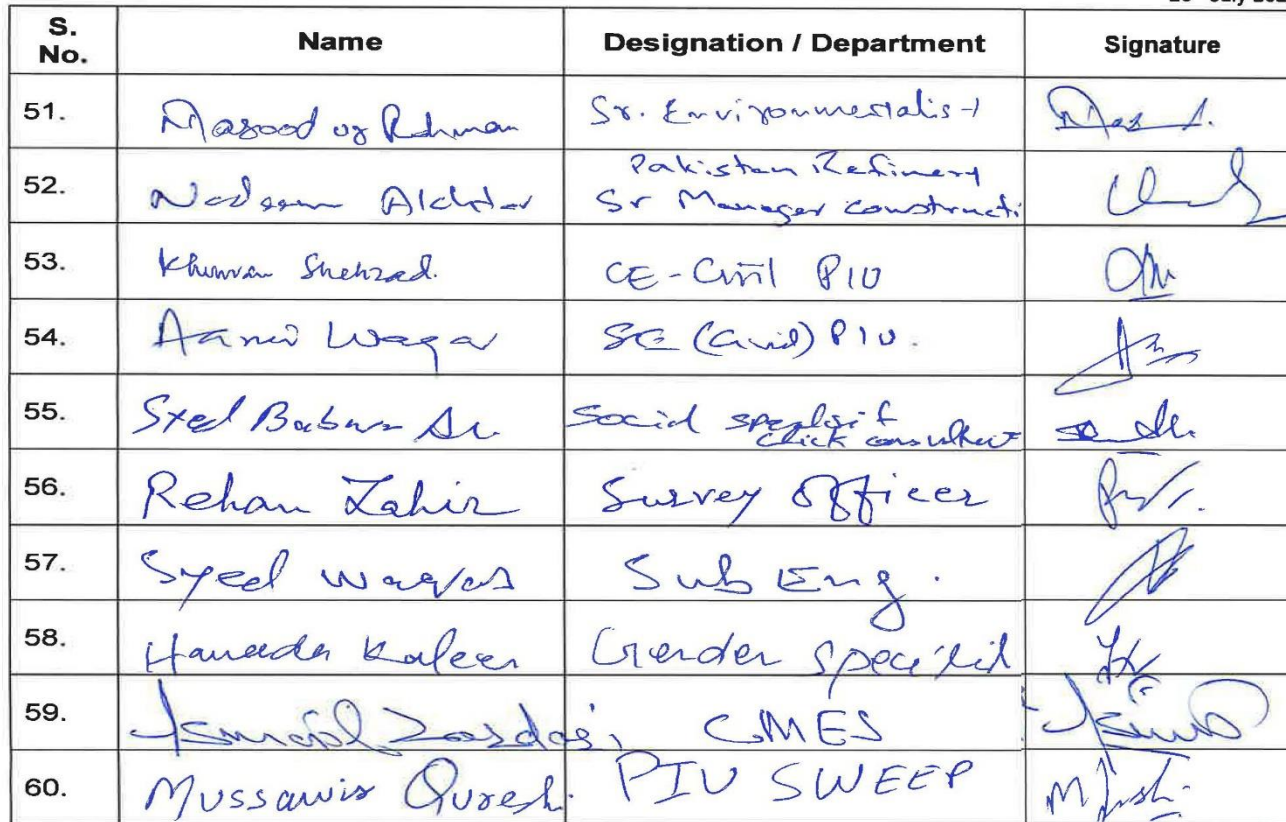 July
S. No. Name Designation / Department Signature
51. Masood ur Rehman Sr. Environmentalist
52. Nadeem Akhtar Pakistan Refinery
Sr Manager constructi
53. Khurram Shehzad. CE-Civil PIU
54. Aamir Waqar SE (Civil) PIU.
55. Syed Babar Social specialist
Click consultant
56. Rehan Zahir Survey Officer
57. Syed Waqas Sub Eng.
58. Kaleem Gender Specialist
59. Ismail CMES
60. Mussawir Qureshi PIU SWEEP